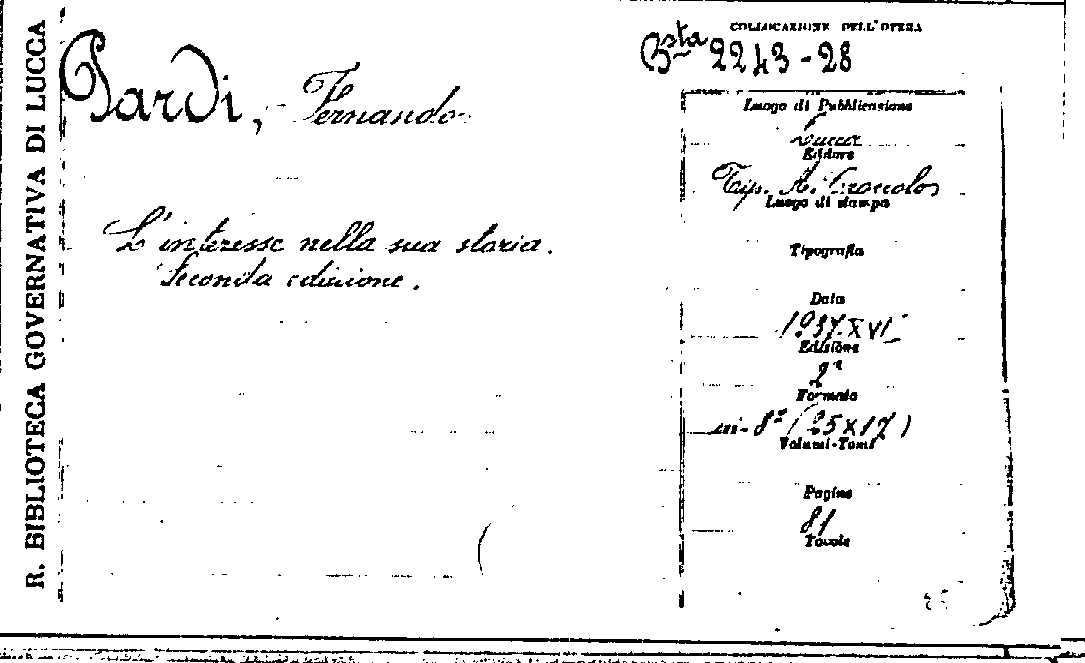 R. BIBLIOTECA GOVERNATIVA DI LUCCA
Pardi, Fernando
L'interesse nella sua storia.
Seconda edizione.
COLLOCAZIONE DELL'OPERA
Bsta 2243-28
Luogo di Pubblicazione
Lucca
Editore
Tip. A.
Luogo di stampa
Tipografia
Data
1937.XVI
Edizione
2a
Formato
in-8° (25x17)
Volumi-Tomi
Pagine
81
Tavole